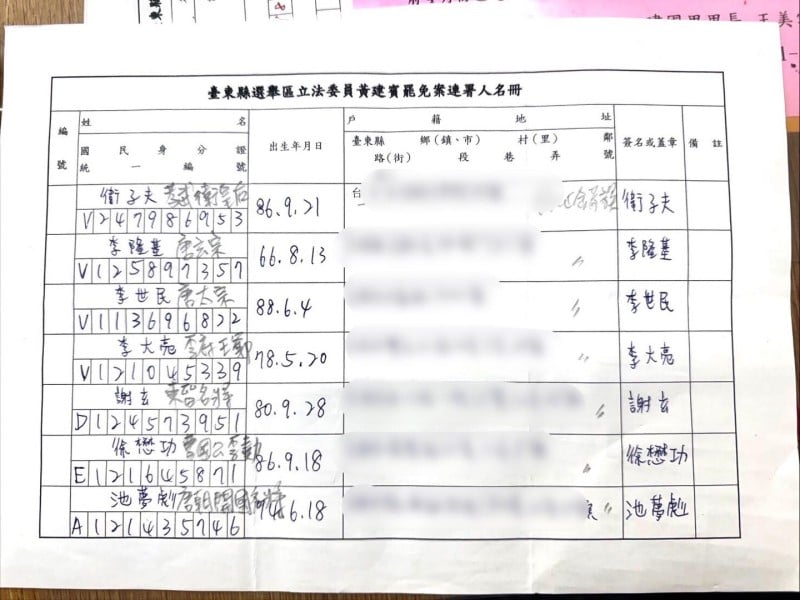 臺東縣選舉區立法委員黃建賓罷免案連署人名冊
編號 姓名 國民身分證統一編號 出生年月日 戶籍地址 臺東縣 鄉(鎮、市) 村(里) 鄰 路(街) 段 巷 弄 號 簽名或蓋章 備註
衛子夫 孝武衛皇后 86.9.21 台 衛子夫
V247986953
李隆基 唐玄宗 66.8.13 〃 李隆基
V125897357
李世民 唐太宗 88.6.4 〃 李世民
V113696822
李大亮 78.5.20 〃 李大亮
V121045339
謝玄 東晉名將 80.9.28 〃 謝玄
D124573951
徐懋功 曹國公李勣 86.9.18 〃 徐懋功
E121645871
池夢彪 唐朝開國名將 74.6.18 〃 池夢彪
A121435746